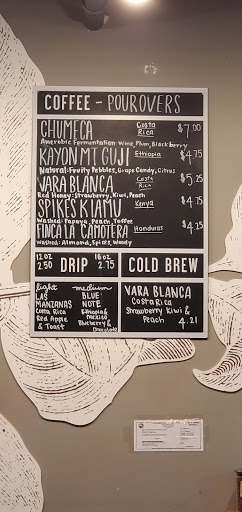 COFFEE - POUROVERS
CHUMECA Costa Rica $7.00
Anerobic Fermentation: Wine, Plum, Blackberry
KAYON MT GUJI Ethiopia $4.75
Natural: Fruity Pebbles, Grape Candy, Citrus
VARA BLANCA Costa Rica $5.25
Red Honey: Strawberry, Kiwi, Peach
SPIKES KIAMU Kenya $4.75
Washed: Papaya, Peach, Toffee
FINCA LA CAMOTERA Honduras $4.25
Washed: Almond, Spices, Woody
12 oz 2.50 DRIP 16 oz 2.75
COLD BREW
light
LAS MANZANAS
Costa Rica
Red Apple
& Toast
medium
BLUE NOTE
Ethiopia &
Mexico
Blueberry &
Chocolate
VARA BLANCA
Costa Rica
Strawberry Kiwi &
Peach 4.21